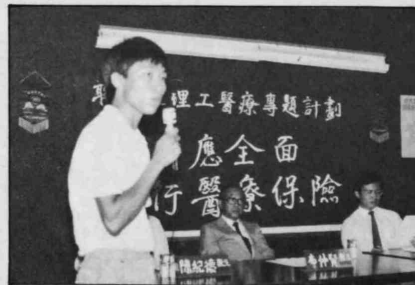 理工醫療專題計劃
應全面
行醫療保險
陳紀德